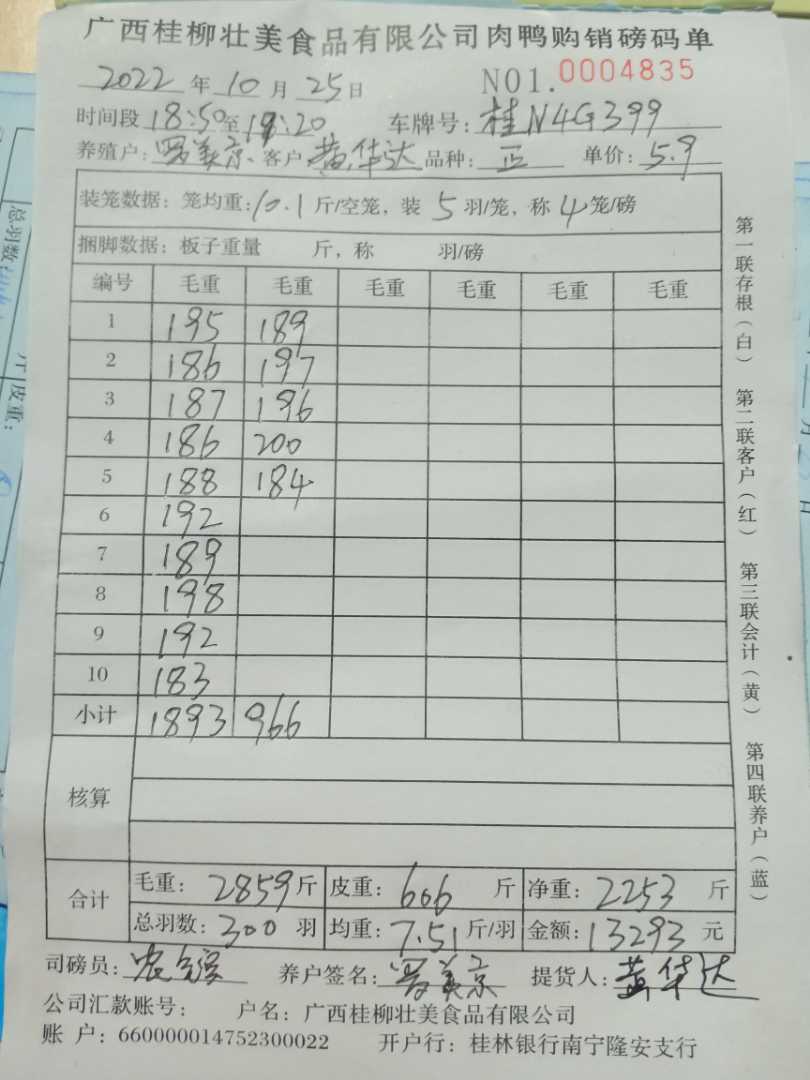 广西桂柳壮美食品有限公司肉鸭购销磅码单
2022 年 10 月 25 日 NO1. 0004835
时间段 18:50 至 19:20 车牌号: 桂N4G399
养殖户: 美京 客户 黄华达 品种: 正 单价: 5.9
装笼数据: 笼均重: 10.1 斤/空笼, 装 5 羽/笼, 称 4 笼/磅
捆脚数据: 板子重量 斤, 称 羽/磅
编号 毛重 毛重 毛重 毛重 毛重 毛重
1 195 189
2 186 197
3 187 196
4 186 200
5 188 184
6 192
7 189
8 198
9 192
10 183
小计 1893 966
核算
合计
毛重: 2859 斤 皮重: 606 斤 净重: 2253 斤
总羽数: 300 羽 均重: 7.51 斤/羽 金额: 13293 元
司磅员: 养户签名: 美京 提货人: 黄华达
公司汇款账号: 户名: 广西桂柳壮美食品有限公司
账 户: 660000014752300022 开户行: 桂林银行南宁隆安支行
第一联存根(白) 第二联客户(红) 第三联会计(黄) 第四联养户(蓝)
总羽数
皮重: